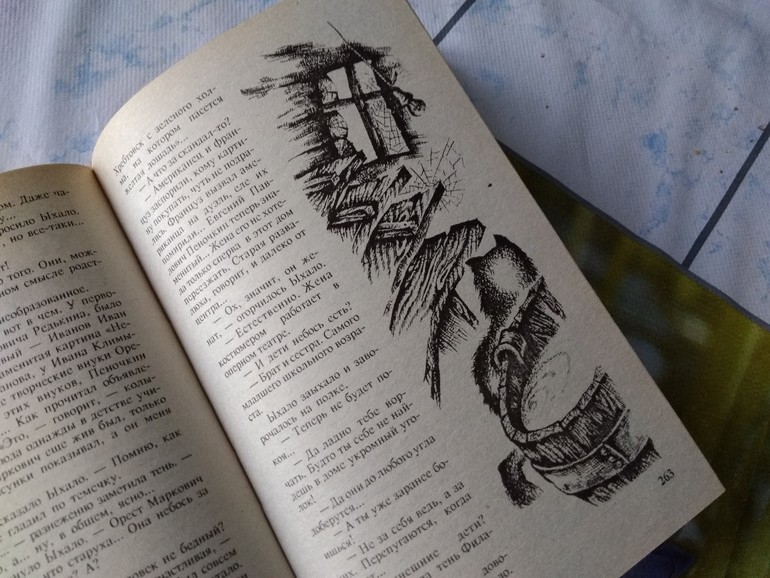 ом. Даже ча-
просило Ыхало.
, но все-таки...
т!
того. Они, мож-
ном смысле родст-
необразованное.
вот в чем. У перво-
овича Редькина, было
вый — Иванов Иван
аменитая картина «Не-
анова, у Ивана Климы-
е творческие внуки Оре-
этих внуков, Пеночкин
Как прочитал объявле-
«Это, — говорит, — колы-
юда однажды в детстве учи-
аркович еще жив был, только
сунки показывал, а он меня
сказало Ыхало. — Помню, как
е гладил по темечку.
— разнеженно заметила тень. —
о, а... ну, в общем, ясно...
нуло Ыхало, — Орест Маркович
что старуха... Она небось за
? А?
ловек не бедный?
частливая, —
л совсем
Хребтовск с зеленого хол-
ма, на котором пасется
желтая лошадь»...
— А что за скандал-то?
— Американец и фран-
цуз заспорили, кому карти-
ну покупать, чуть не подра-
лись. Француз вызвал аме-
риканца на дуэль, еле их
помирили... Евгений Пав-
лович Пеночкин теперь зна-
менитый... Жена его не хоте-
ла только сперва в этот дом
переезжать. Старая разва-
люха, говорит, и далеко от
центра...
— Ох, значит, он же-
нат, — огорчилось Ыхало.
— Естественно. Жена
костюмером работает в
оперном театре.
— И дети небось есть?
— Брат и сестра. Самого
младшего школьного возра-
ста.
Ыхало заыхало и заво-
рочалось на полке.
— Теперь не будет по-
коя...
— Да ладно тебе вор-
чать. Будто ты себе не най-
дешь в доме укромный уго-
лок!
— Да они до любого угла
доберутся...
— А ты уже заранее бо-
ишься!
— Не за себя ведь, а за
них. Перепугаются, когда
нешние дети?
ла тень Фила-
дово-
263